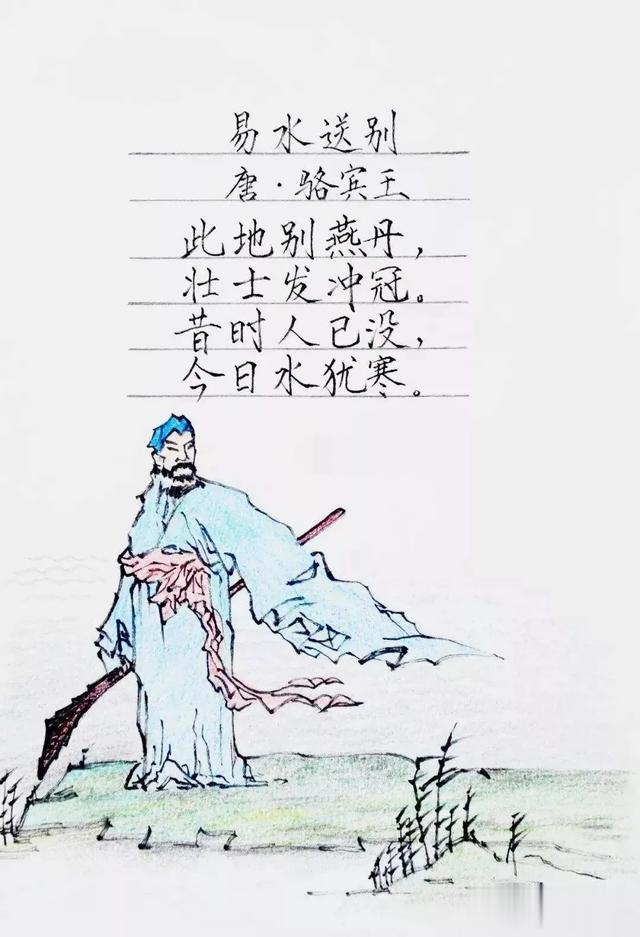 易水送别
唐·骆宾王
此地别燕丹，
壮士发冲冠。
昔时人已没，
今日水犹寒。